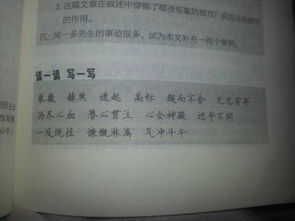 2.这篇文章在叙述中穿插了哪些形象的描写？说说这些描写
的作用。
四、闻一多先生的事迹很多。试为本文补充一两个事例。
读一读 写一写
衰微 赫然 迭起 高标 锲而不舍 兀兀穷年
沥尽心血 潜心贯注 心会神凝 迥乎不同
一反既往 慷慨淋漓 气冲斗牛